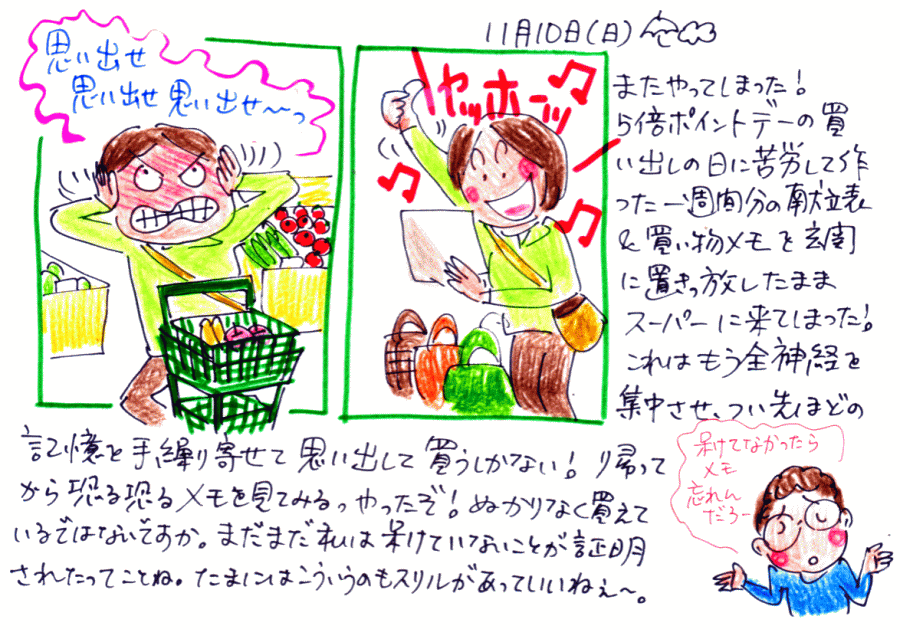 11月10日(日)
思い出せ
思い出せ 思い出せ〜っ
ヤッホーッ
またやってしまった!
5倍ポイントデーの買
い出しの日に苦労して作
った一週間分の献立表
&買い物メモを玄関
に置きっ放したまま
スーパーに来てしまった!
これはもう全神経を
集中させ、つい先ほどの
記憶を手繰り寄せて思い出して買うしかない! 帰って
から恐る恐るメモを見てみるっやったぞ!ぬかりなく買えて
いるではないですか。まだまだ私は呆けていないことが証明
されたってことね。たまにはこういうのもスリルがあっていいねぇ〜。
呆けてなかったら
メモ
忘れん
だろー